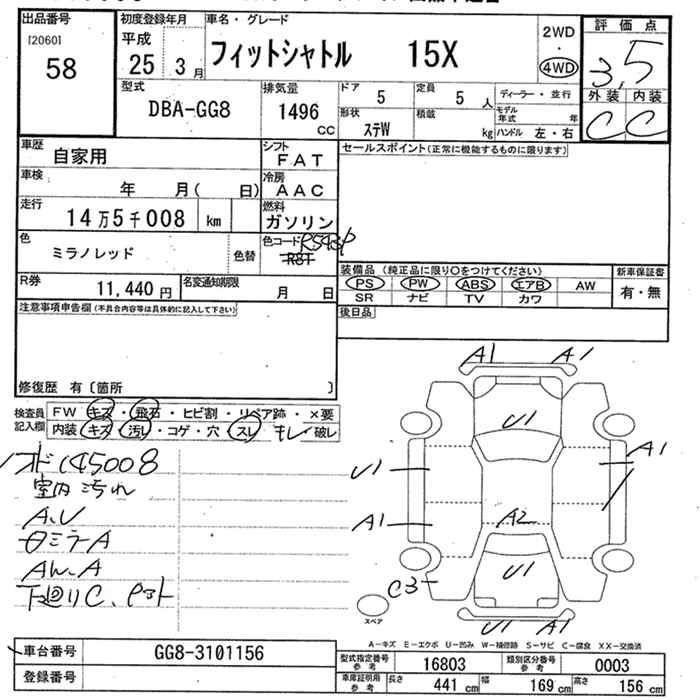 出品番号 初度登録年月 車名・グレード 2WD 評価点
[2060] 平成 フィットシャトル 15X ・ 3.5
58 25 3月 4WD
型式 排気量 ドア 5 定員 5人 ディーラー・並行 外装 内装
DBA-GG8 1496cc 形状 ステW 積載 kg モデル年式 年 C C
ハンドル 左・右
車歴 自家用 シフト FAT セールスポイント(正常に機能するものに限ります)
車検 年 月( 日) 冷房 AAC
走行 14万5千008 km 燃料 ガソリン
色 ミラノレッド 色替 色コード R543P
R81
R券 11,440円 名変通知期限 月 日
装備品 (純正品に限り○をつけてください) 新車保証書
PS PW ABS エアB AW 有・無
SR ナビ TV カワ
後日品
注意事項申告欄(不具合内容等は具体的に記入して下さい)
修復歴 有〔箇所 〕
検査員記入欄 FW キズ・飛石・ヒビ割・リペア跡・×要
内装 キズ・汚レ・コゲ・穴・スレ キレ・破レ
145008
室内汚れ
A、U
ミラーA
AW、A
下廻りC、
A1 A1
U1
U1 A1
A1 A2
U1
C3
U1 A1
スペア
A-キズ E-エクボ U-凹み W-補修跡 S-サビ C-腐食 XX-交換済
車台番号 GG8-3101156
登録番号
型式指定番号 参考 16803 類別区分番号 参考 0003
車庫証明用 参考 長さ 441cm 幅 169cm 高さ 156cm